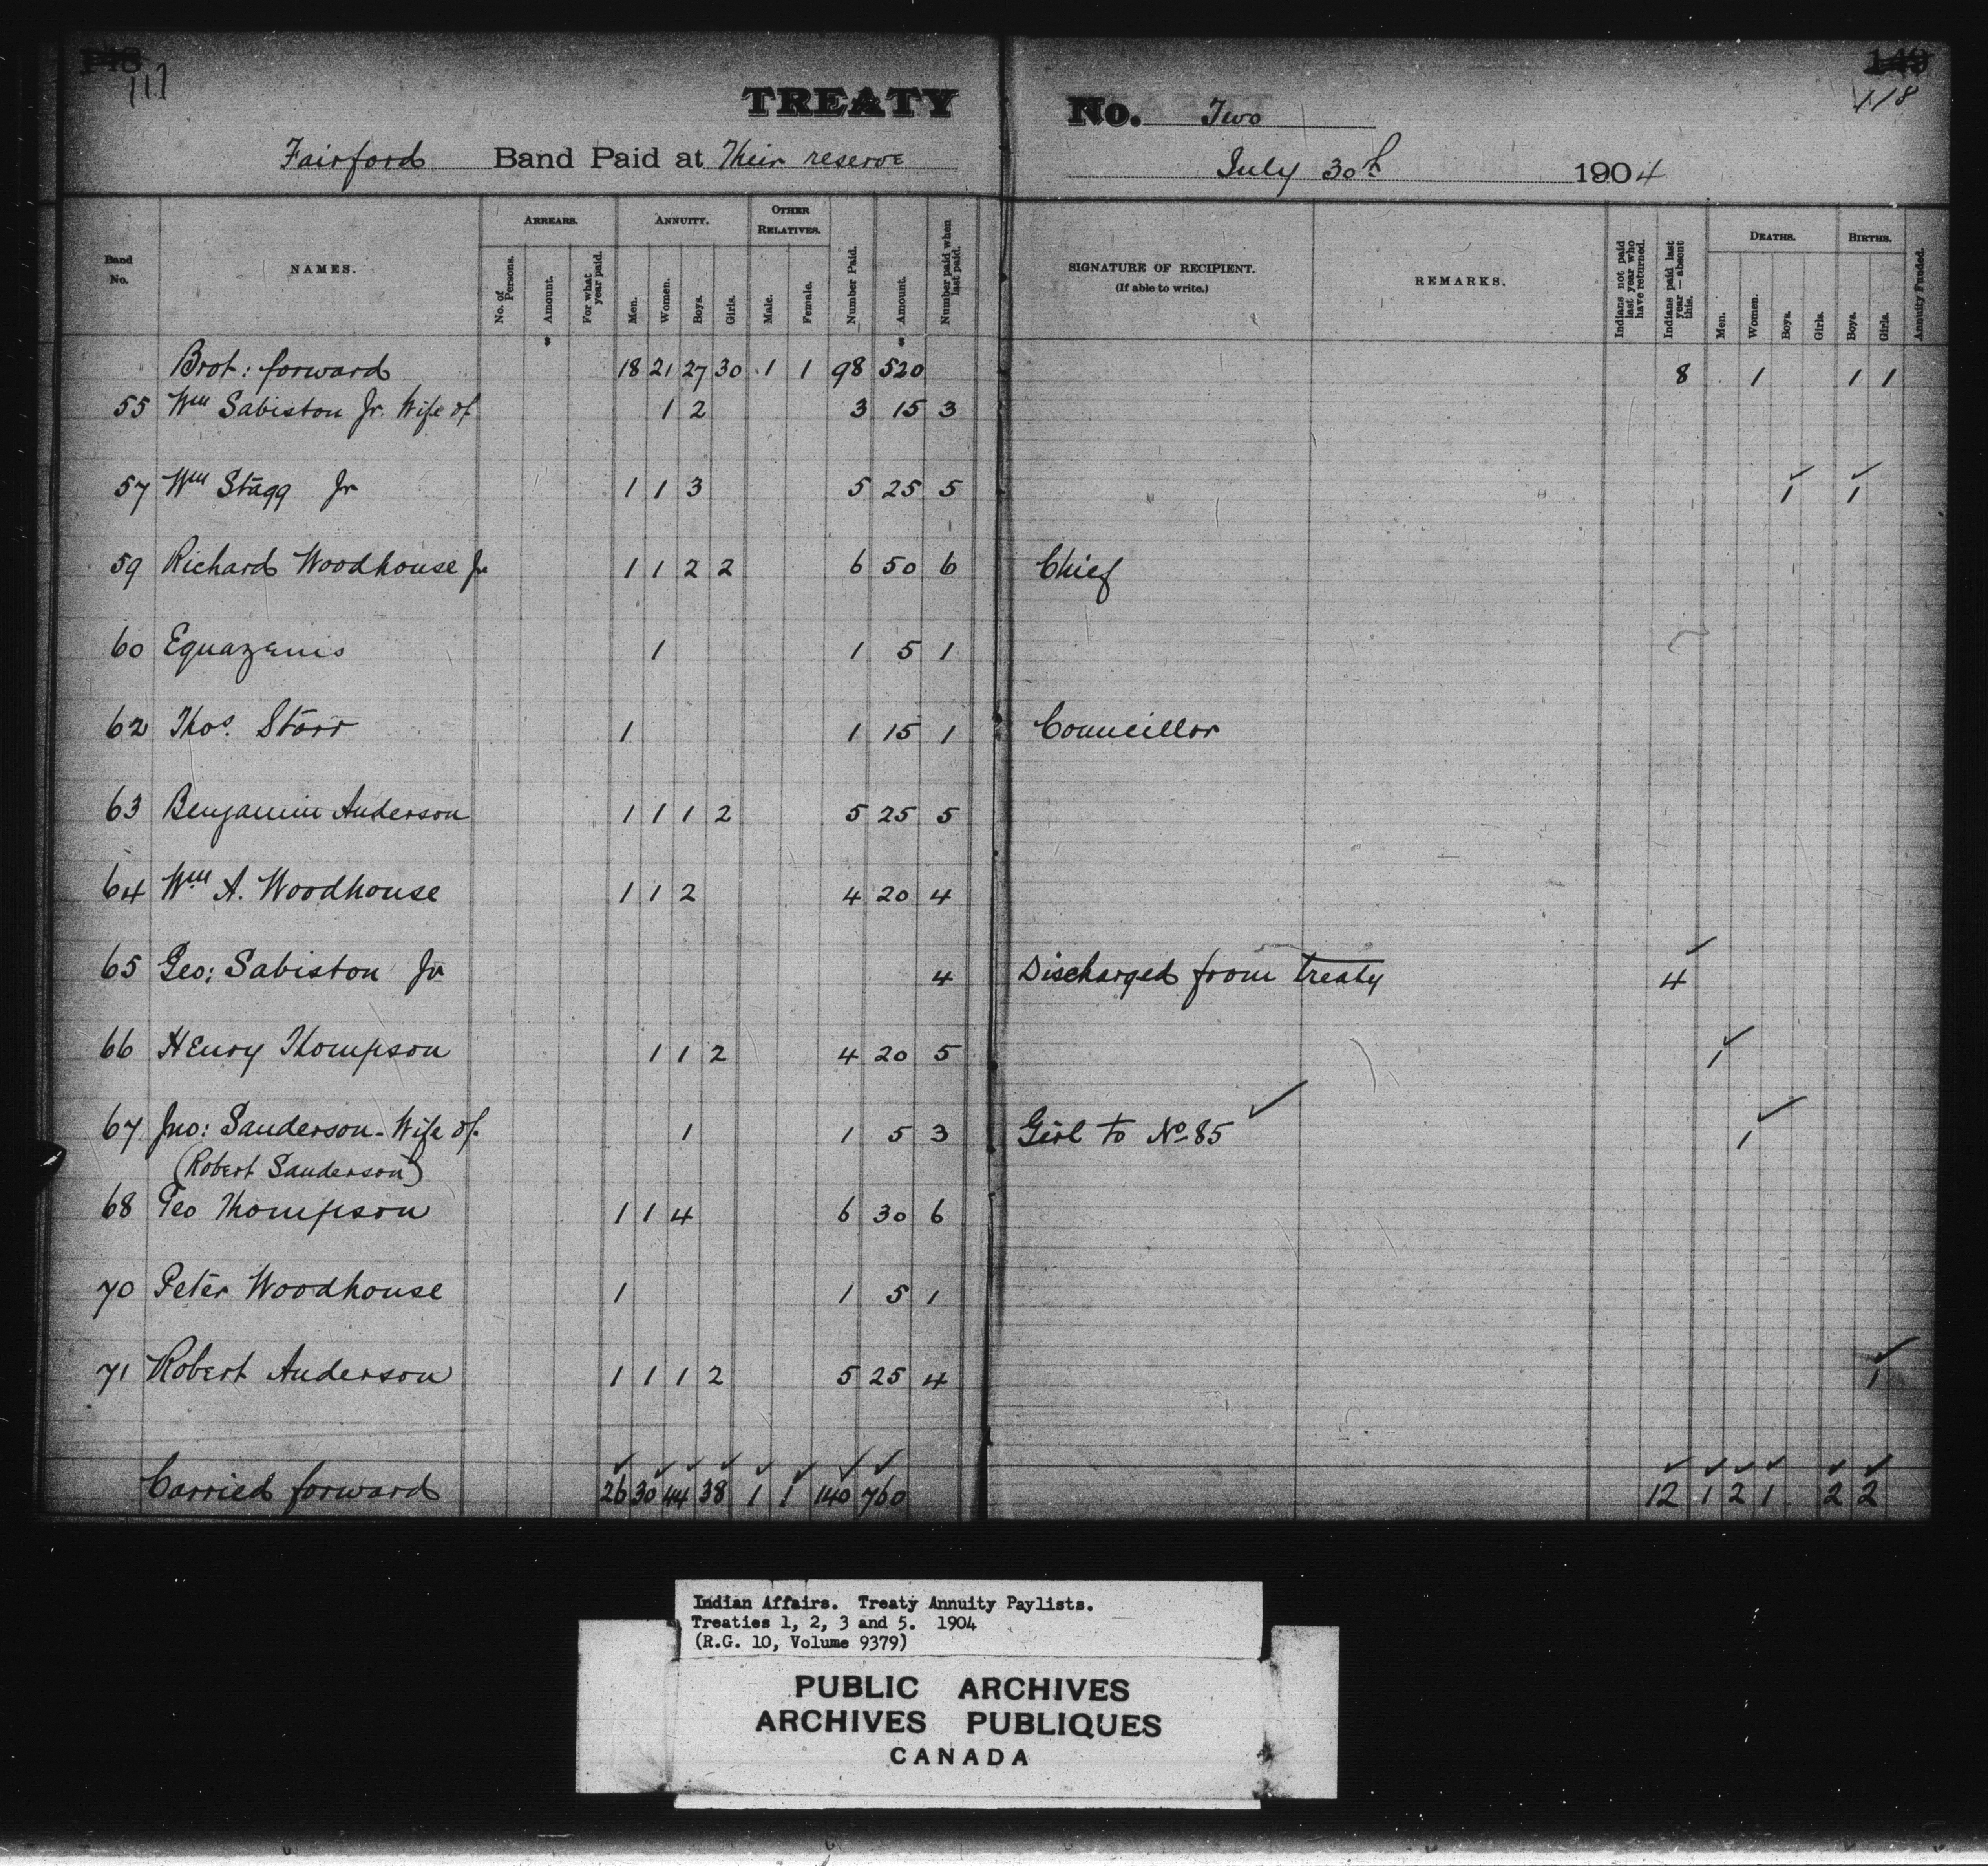 148 149
117 118
TREATY No. Two
Fairford Band Paid at Their reserve July 30th 1904
Band No. NAMES. ARREARS. No. of Persons. Amount. For what year paid. ANNUITY. Men. Women. Boys. Girls. OTHER RELATIVES. Male. Female. Number Paid. Amount. Number paid when last paid. SIGNATURE OF RECIPIENT. (If able to write.) REMARKS. Indians not paid last year who have returned. Indians paid last year — absent this. DEATHS. Men. Women. Boys. Girls. BIRTHS. Boys. Girls. Annuity Funded.
Brot: forward 18 21 27 30 1 1 98 520 8 1 1 1
55 Wm Sabiston Jr. Wife of 1 2 3 15 3
57 Wm Stagg Jr 1 1 3 5 25 5 1 1
59 Richard Woodhouse Jr 1 1 2 2 6 50 6 Chief
60 Equazenis 1 1 5 1
62 Thos. Storr 1 1 15 1 Councillor
63 Benjamin Anderson 1 1 1 2 5 25 5
64 Wm A. Woodhouse 1 1 2 4 20 4
65 Geo: Sabiston Jr 4 Discharged from treaty 4
66 Henry Thompson 1 1 2 4 20 5 1
67 Jno: Sanderson - Wife of. 1 1 5 3 Girl to No 85 1
(Robert Sanderson)
68 Geo Thompson 1 1 4 6 30 6
70 Peter Woodhouse 1 1 5 1
71 Robert Anderson 1 1 1 2 5 25 4 1
Carried forward 26 30 44 38 1 1 140 760 12 1 2 1 2 2
Indian Affairs. Treaty Annuity Paylists.
Treaties 1, 2, 3 and 5. 1904
(R.G. 10, Volume 9379)
PUBLIC ARCHIVES
ARCHIVES PUBLIQUES
CANADA